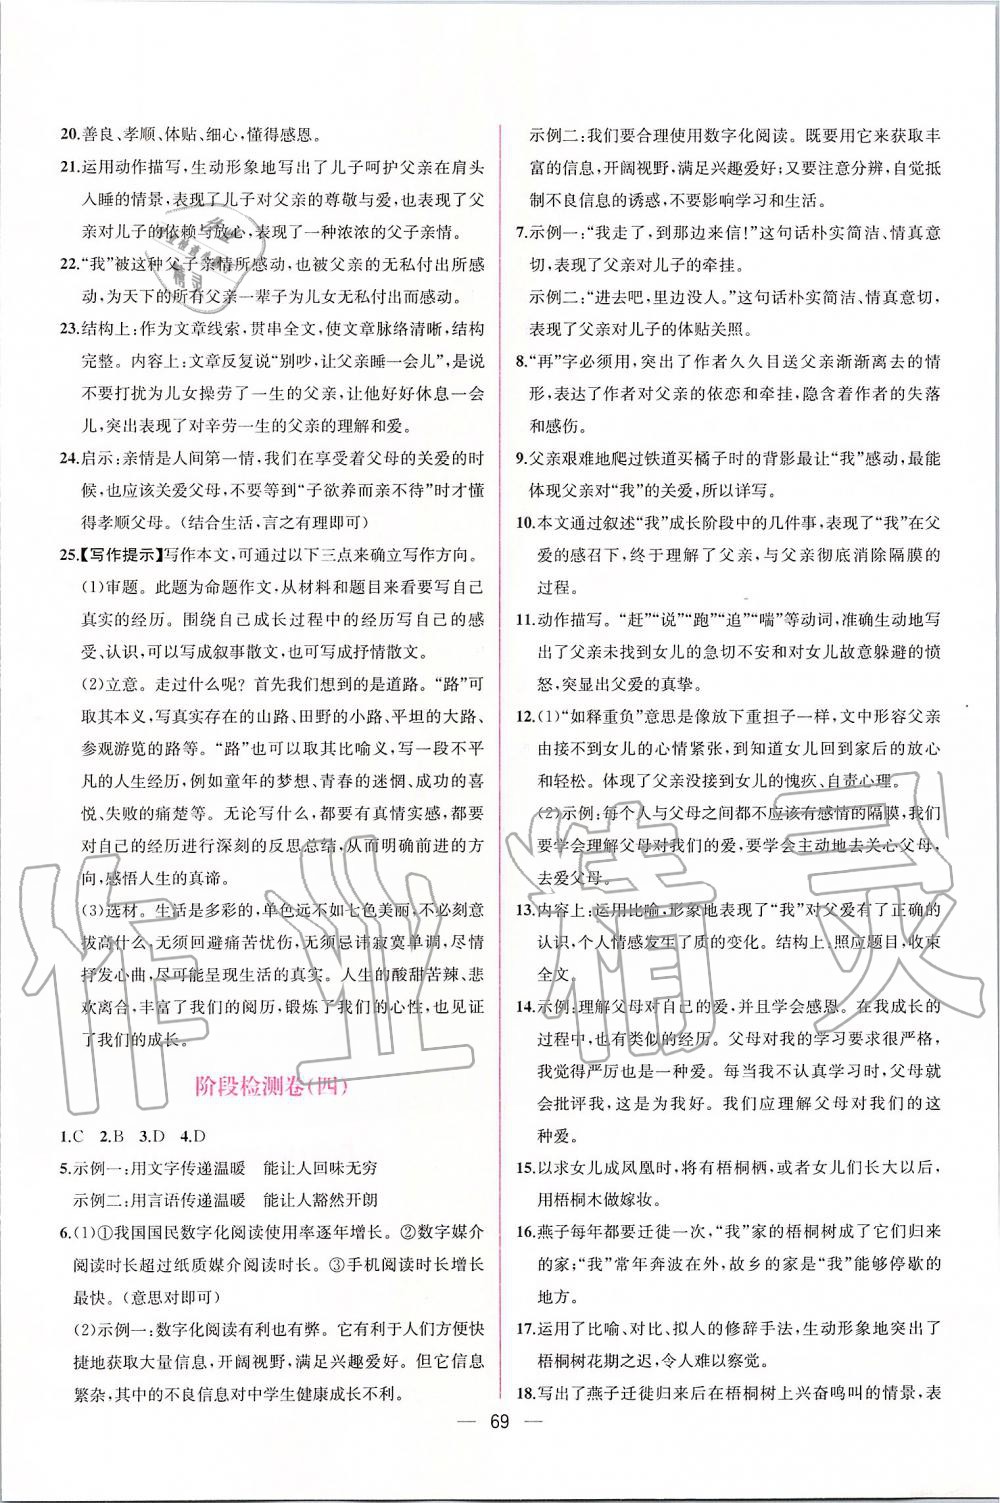 20.善良、孝顺、体贴、细心,懂得感恩。
21.运用动作描写,生动形象地写出了儿子呵护父亲在肩头
入睡的情景,表现了儿子对父亲的尊敬与爱,也表现了父
亲对儿子的依赖与放心,表现了一种浓浓的父子亲情。
22.“我”被这种父子亲情所感动,也被父亲的无私付出所感
动,为天下的所有父亲一辈子为儿女无私付出而感动。
23.结构上:作为文章线索,贯串全文,使文章脉络清晰,结构
完整。内容上:文章反复说“别吵,让父亲睡一会儿”,是说
不要打扰为儿女操劳了一生的父亲,让他好好休息一会
儿,突出表现了对辛劳一生的父亲的理解和爱。
24.启示:亲情是人间第一情,我们在享受着父母的关爱的时
候,也应该关爱父母,不要等到“子欲养而亲不待”时才懂
得孝顺父母。(结合生活,言之有理即可)
25.【写作提示】写作本文,可通过以下三点来确立写作方向。
(1)审题。此题为命题作文,从材料和题目来看要写自己
真实的经历。围绕自己成长过程中的经历写自己的感
受、认识,可以写成叙事散文,也可以写成抒情散文。
(2)立意。走过什么呢?首先我们想到的是道路。“路”可
取其本义,写真实存在的山路、田野的小路、平坦的大路、
参观游览的路等。“路”也可以取其比喻义,写一段不平
凡的人生经历,例如童年的梦想、青春的迷惘、成功的喜
悦、失败的痛楚等。无论写什么,都要有真情实感,都要
对自己的经历进行深刻的反思总结,从而明确前进的方
向,感悟人生的真谛。
(3)选材。生活是多彩的,单色远不如七色美丽,不必刻意
拔高什么,无须回避痛苦忧伤,无须忌讳寂寞单调,尽情
抒发心曲,尽可能呈现生活的真实。人生的酸甜苦辣、悲
欢离合,丰富了我们的阅历,锻炼了我们的心性,也见证
了我们的成长。
阶段检测卷(四)
1.C 2.B 3.D 4.D
5.示例一:用文字传递温暖 能让人回味无穷
示例二:用言语传递温暖 能让人豁然开朗
6.(1)①我国国民数字化阅读使用率逐年增长。②数字媒介
阅读时长超过纸质媒介阅读时长。③手机阅读时长增长
最快。(意思对即可)
(2)示例一:数字化阅读有利也有弊。它有利于人们方便快
捷地获取大量信息,开阔视野,满足兴趣爱好。但它信息
繁杂,其中的不良信息对中学生健康成长不利。
示例二:我们要合理使用数字化阅读。既要用它来获取丰
富的信息,开阔视野,满足兴趣爱好;又要注意分辨,自觉抵
制不良信息的诱惑,不要影响学习和生活。
7.示例一:“我走了,到那边来信!”这句话朴实简洁、情真意
切,表现了父亲对儿子的牵挂。
示例二:“进去吧,里边没人。”这句话朴实简洁、情真意切,
表现了父亲对儿子的体贴关照。
8.“再”字必须用,突出了作者久久目送父亲渐渐离去的情
形,表达了作者对父亲的依恋和牵挂,隐含着作者的失落
和感伤。
9.父亲艰难地爬过铁道买橘子时的背影最让“我”感动,最能
体现父亲对“我”的关爱,所以详写。
10.本文通过叙述“我”成长阶段中的几件事,表现了“我”在父
爱的感召下,终于理解了父亲,与父亲彻底消除隔膜的
过程。
11.动作描写。“赶”“说”“跑”“追”“喘”等动词,准确生动地写
出了父亲未找到女儿的急切不安和对女儿故意躲避的愤
怒,突显出父爱的真挚。
12.(1)“如释重负”意思是像放下重担子一样,文中形容父亲
由接不到女儿的心情紧张,到知道女儿回到家后的放心
和轻松。体现了父亲没接到女儿的愧疚、自责心理。
(2)示例:每个人与父母之间都不应该有感情的隔膜,我们
要学会理解父母对我们的爱,要学会主动地去关心父母,
去爱父母。
13.内容上:运用比喻,形象地表现了“我”对父爱有了正确的
认识,个人情感发生了质的变化。结构上:照应题目,收束
全文。
14.示例:理解父母对自己的爱,并且学会感恩。在我成长的
过程中,也有类似的经历。父母对我的学习要求很严格,
我觉得严厉也是一种爱。每当我不认真学习时,父母就
会批评我,这是为我好。我们应理解父母对我们的这
种爱。
15.以求女儿成凤凰时,将有梧桐栖,或者女儿们长大以后,
用梧桐木做嫁妆。
16.燕子每年都要迁徙一次,“我”家的梧桐树成了它们的
家;“我”常年奔波在外,故乡的家是“我”能够停歇的
地方。
17.运用了比喻、对比、拟人的修辞手法,生动形象地突出了
梧桐树花期之迟,令人难以察觉。
18.写出了燕子迁徙归来后在梧桐树上兴奋鸣叫的情景,表
— 69 —
作业精灵